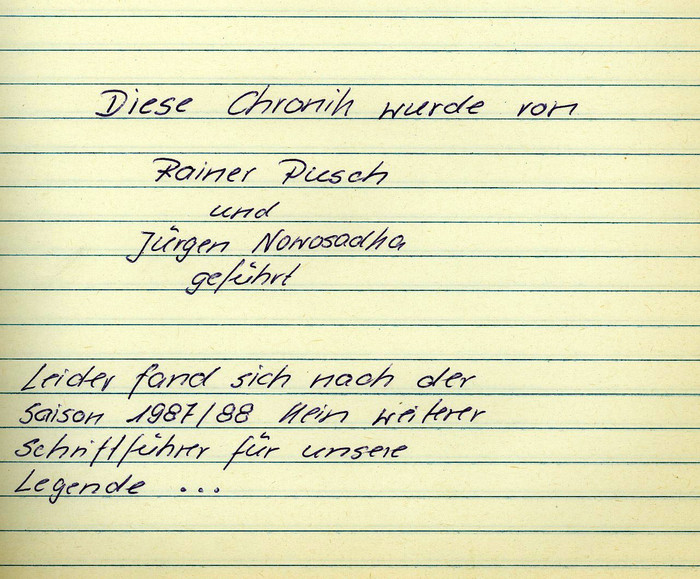 Diese Chronik wurde von
Rainer Pusch
und
Jürgen Nowosadka
geführt
Leider fand sich nach der
Saison 1987/88 kein weiterer
Schriftführer für unsere
Legende ...